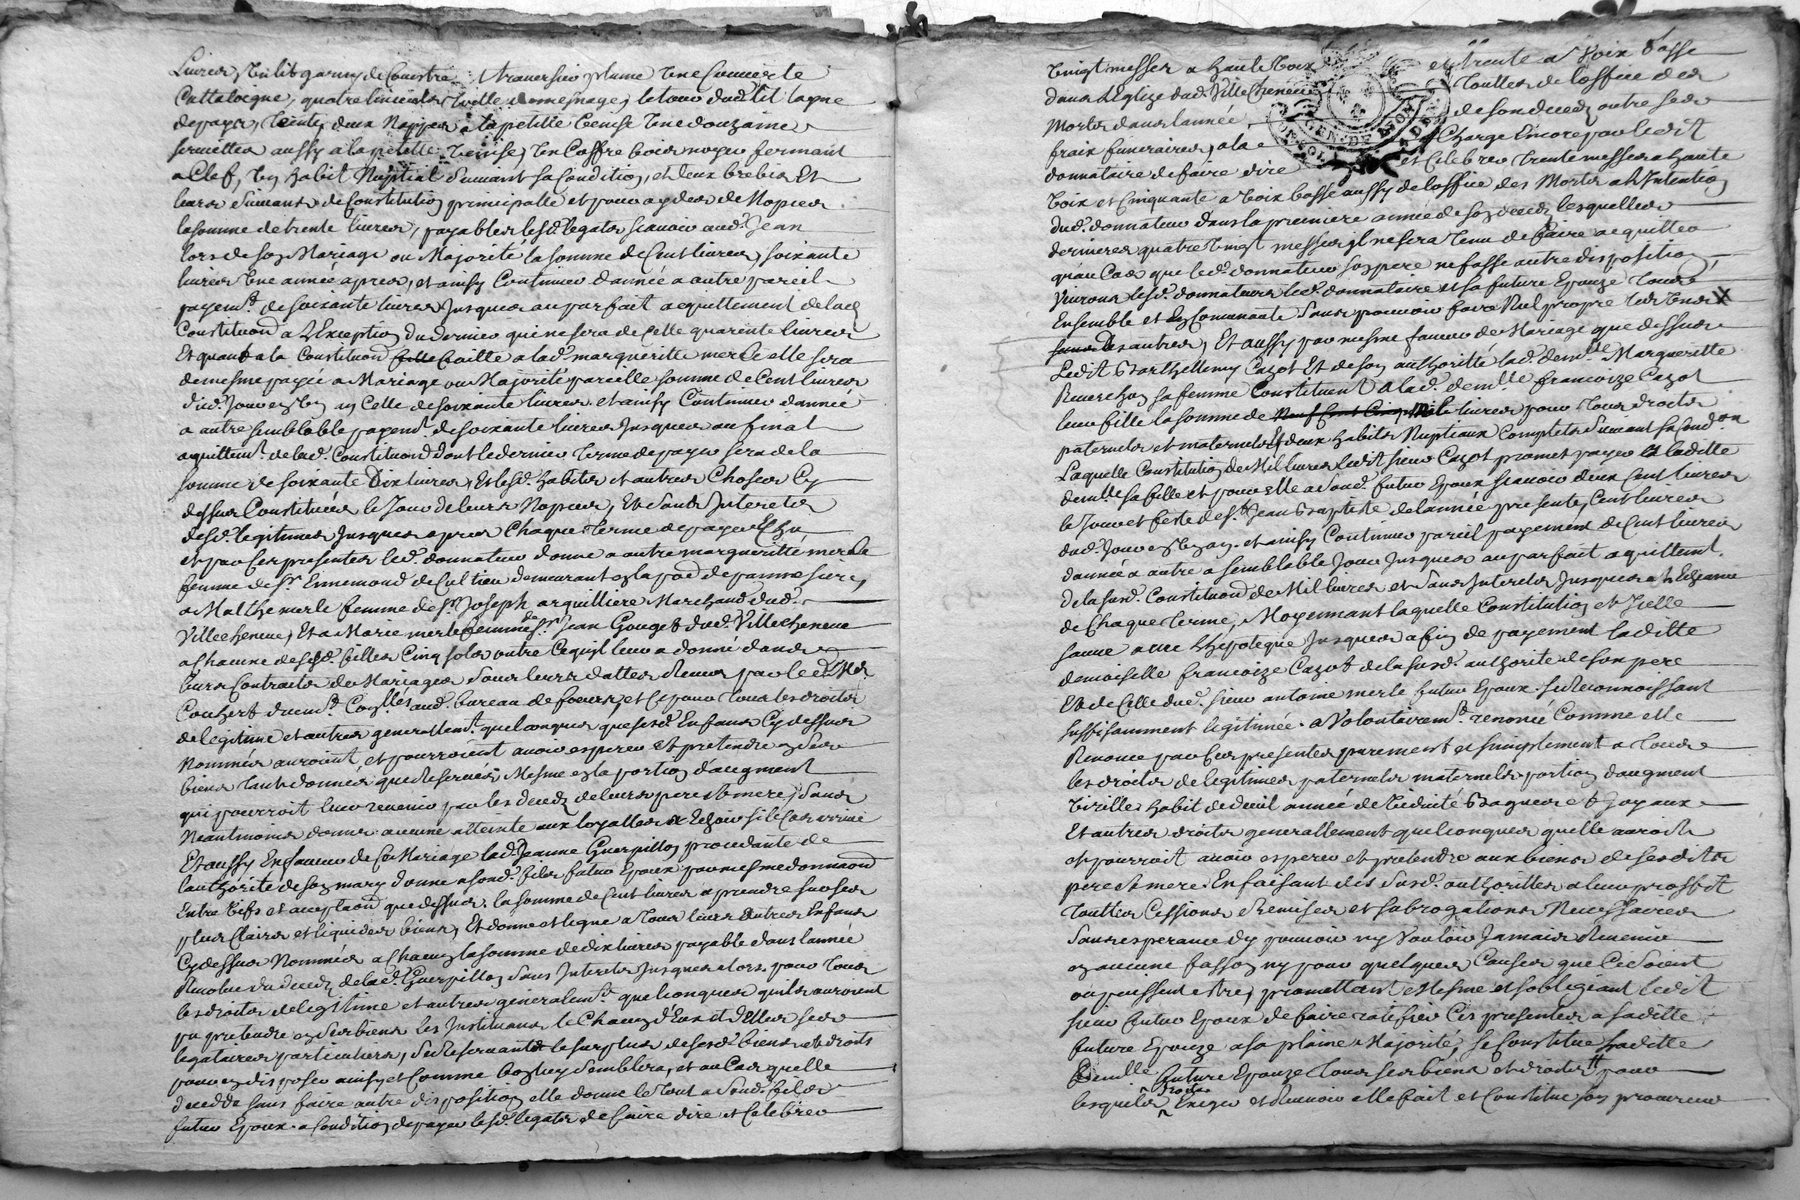 Livres, un lit garny de Couestre traversin plume une Couverte
Cattaloigne, quatre linceuls toille de mesnage, le tour dud. lit layne
de pays, trente deux Nappes a la petitte Venise une douzaine
serviettes aussy a la petitte Venise, un Coffre bois noyer fermant
a Clef, un habit Nuptial suivant sa Condition, et deux brebis Et
leurs suivans de Constitution principalle et pour aydes de Nopces
la somme de trente livres, payables lesd. legats scavoir aud. Jean
lors de son Mariage ou Majorité la somme de Cent livres, soixante
livres une année apres, et ainsy Continuer d'année a autre pareil
payem.t de soixante livres Jusques au parfait acquittement de lad.
Constituon a L'Exception du dernier qui ne sera de Celle quarente livres
Et quant a la Constituon faitte a lad. margueritte merle elle sera
de mesme payée a Mariage ou Majorité pareille somme de Cent livres
dud. Jour en un an Celle de soixante livres et ainsy Continuer d'année
a autre semblable payem.t de soixante livres Jusques au final
aquittem.t de lad. Constituon dont le dernier terme de payer sera de la
somme de soixante Dix livres, Et lesd. habits et autres Choses Cy
dessus Constituées le Jour de leurs Nopces, Et sans Interets
desd. legitimes Jusques apres Chaque terme de payer Echu
et par Ces presentes led. donnateur donne a autre margueritte merle
femme de S.r Ennemond de Cultieu demeurant en la par. de pannessiere,
a Malthe merle femme de S.r Joseph arquilliere Marchand dud.
Villecheneve, Et a Marie merle femme de S.r Jean Gouget dud. Villecheneve
a Chacune de sesd. filles Cinq sols outre Ce qu'il leur a donné dans
leurs Contracts de Mariages sous leurs dattes Receus par le d. M.e
Couhert
de legitime et autres generallem.t quelconques que sesd. Enfans Cy dessus
Nommés auroient, et pourroient avoir esperer et pretendre en ses
biens tant donnés que Reservés Mesme en la portion d'augment
qui pourroit leur revenir par les deceds de leurs pere et mere, sans
Neantmoins donner aucune atteinte aux loyalles Echoir si le Cas arrive
Et aussy En faveur de Ce Mariage lad. Jeanne Guerpillon procedante de
l'authorité de son mary donne a sond. fils futur Epoux par mesme donnaon
Entre Vifs et acceptaon que dessus la somme de Cent livres a prendre sur ses
plus Clairs et liquides biens, Et donne et legue a tous leurs Autres Enfans
Cy dessus Nommés a Chacun la somme de dix livres payable dans l'année
Revolue du deceds de lad. Guerpillon sans Interets Jusques alors pour tous
les droits de legitime et autres generalem.t quelconques qu'ils auroient
pu pretendre en ses biens les Instituans le Chacun d'Eux et d'Elles ses
legataires particuliers, se Reservante le surplus de sesd. biens et droits
pour en disposer ainsy et Comme bon luy semblera, et au Cas qu'elle
decedde sans faire autre disposition elle donne le tout a sond. fils
futur Epoux a Condition de payer lesd. legats de faire dire et Celebrer
Vingt messes a haute Voix et trente a Voix basse
dans L'Eglise dud. Villecheneve toutes de l'office des
Morts dans l'année de son deceds outre ses
frais funeraires, a la Charge Encore par ledit
donnataire de faire dire et Celebrer trente messes a haute
Voix et Cinquante a Voix basse aussy de l'office des Morts a L'Intention
dud. donnateur dans la premiere année de son deceds lesquelles
dernieres quatre vingt messes il ne sera tenu de faire acquitter
qu'au Cas que led. donnateur son pere ne fasse autre disposition,
Vivrons lesd. donnateurs led. donnataire et sa future Epouze tous
Ensemble et En Comunauté sans pouvoir faire Nul propre les uns
sans les autres, Et aussy par mesme faveur de Mariage que dessus
Ledit Barthellemy Cazot Et de son authoritté lad. dem.lle Margueritte
sa femme Constituent a lad. demlle francoize Cazot
leur fille la somme de Neuf Cent Cinq Mil livres pour tous droits
paternels et maternels Et deux habits Nuptiaux Complets suivant sa Condon
Laquelle Constitution de Mil livres ledit sieur Cazot promet payer a laditte
demlle sa fille et pour elle a sond. futur Epoux scavoir deux Cent livres
le Jour et feste de S.t Jean Baptiste de l'année presente, Cent livres
dud. Jour en un an et ainsy Continuer pareil payement de Cent livres
d'année a autre a semblable Jour Jusques au parfait aquittemt.
de la susd. Constituon de Mil livres et sans Interets Jusques a L'Echeance
de Chaque terme, Moyennant laquelle Constitution et Icelle
sauve avec L'hipoteque Jusques a fin de payement laditte
demoiselle francoize Cazot de la susd. authorité de son pere
Et de Celle dud. sieur antoine merle futur Epoux se Reconnoissant
suffisamment legitimée a Volontairem.t renoncé Comme elle
Renonce par Ces presentes purement et simplement a tous
les droits de legitimes paternels maternels portion d'augment
Virille habit de deuil année de Viduité Bagues et Joyaux
Et autres droits generallement quelconques qu'elle auroit
et pourroit avoir esperer et pretendre aux biens de sesdits
pere et mere En faisant des susd. authorités a leur proffit
touttes Cessions Remises et subrogations Necessaires
sans esperance d'y pouvoir ny Vouloir Jamais Revenir
en aucune fasson ny pour quelques Causes que Ce soient
ou puissent estre, promettant Mesme et s'obligeant ledit
sieur futur Epoux de faire ratifier Ces presentes a saditte
future Epouze a sa plaine Majorité, se Constitue Laditte
Demlle future Epouze tous ses biens et droits pour
lesquels droits Exiger et Recevoir elle fait et Constitue son procureur